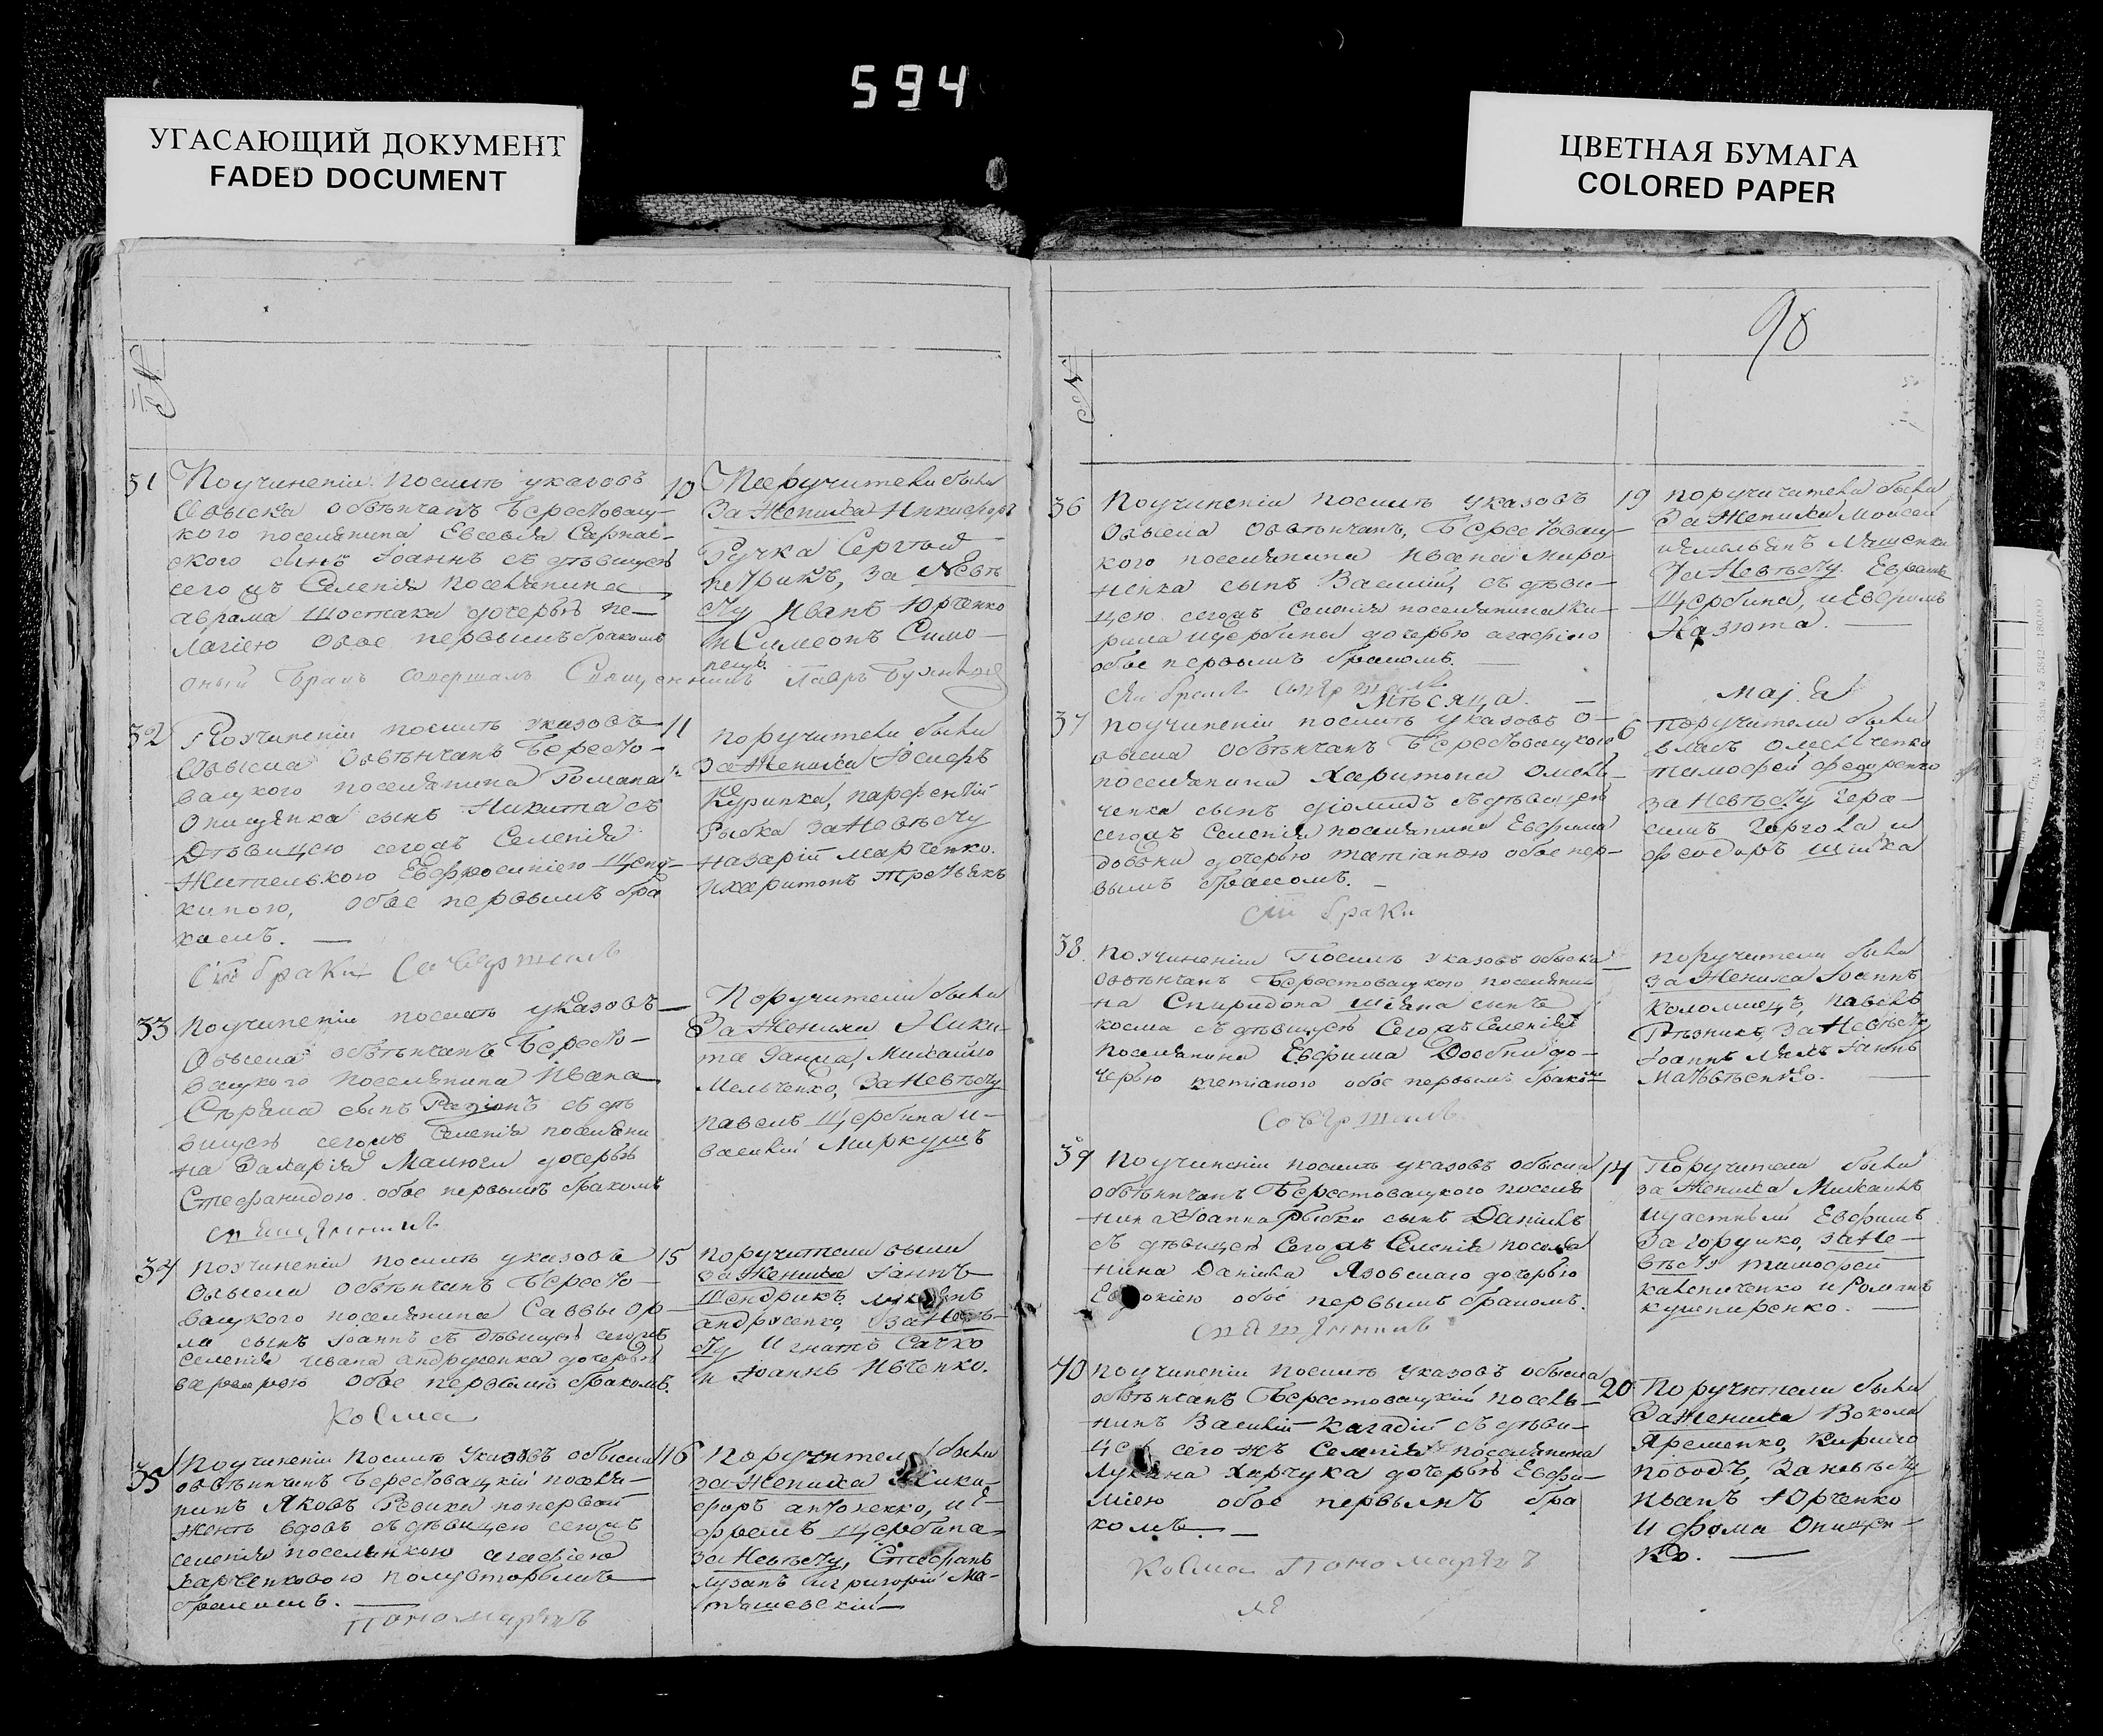 594
УГАСАЮЩИЙ ДОКУМЕНТ
FADED DOCUMENT
ЦВЕТНАЯ БУМАГА
COLORED PAPER
98
31
По учиненіи посилъ указовъ
обыска обвѣнчанъ Берестовец-
кого поселянина Евсевія
сынъ Іоаннъ съ дѣвицею
сего жъ Селенія поселянина
аврама Шостака дочерью пе-
лагіею обое первымъ бракомъ
10
Поручители были
За Жениха Никифоръ
Ручка Сергѣй
Петрикъ, за Невѣ
сту Иванъ Юрченко
и Симеонъ Симо-
ненко
оный Бракъ совершалъ Священникъ Лавръ
32
По учиненіи посилъ указовъ
Обыска Обвѣнчанъ Бересто-
вецкого поселянина Романа
Онищенка сынъ Никита съ
Дѣвицею сего жъ Селенія
Жителькою Евфросиніею
обое первымъ бра
комъ.
11
поручители были
За Жениха Іосифъ
Куринка, парфентій
Рыбка За Невѣсту
Назарій марченко.
и харитонъ третьякъ
Сіи браки Совершалъ
33
По учиненіи посилъ указовъ
Обыска обвѣнчанъ Бересто-
вецкого поселянина Ивана
сынъ съ дѣ
вицею сего жъ Селенія поселяни
на Захарія Малюги дочерью
Стефанидою обое первымъ бракомъ
Поручители были
За Жениха Ники-
та Ганжа, Михайло
Мельченко, За Невѣсту
павелъ Щербина и
василій Миркушъ
Священникъ
34
По учиненіи посилъ указовъ
Обыска обвѣнчанъ Бересто-
вецкого поселянина Саввы Ор-
ла сынъ Іоаннъ съ Дѣвицею сего жъ
Селенія Ивана андрусенка дочерью
варварою обое первымъ бракомъ.
15
поручители были
За Жениха Іаннъ
Шендрикъ
андрусенко, За Невѣ-
сту Игнатъ Сачко
и Іоаннъ Ивченко.
Косма
35
По учиненіи посилъ Указовъ обыска
обвѣнчанъ Берестовецкій посел-
нинъ Яковъ Ревика по первой
женѣ вдовъ съ дѣвицею сего жъ
селенія поселянкою агафіею
харченковою полувторымъ
бракомъ.
16
Поручители были
за Жениха Ники-
форъ антоненко, и Е-
фремъ Щербина
за Невѣсту, Стефанъ
Лузанъ и григорій Ма-
тяшевскій
Пономаревъ
36
По учиненіи посилъ Указовъ
Обыска Обвѣнчанъ, Берестовец-
кого поселянина Ивана миро
ненка сынъ Василій, съ дѣви-
цею сего жъ Селенія поселянина Ки-
рила Щербины дочерью агафіею
обое первымъ бракомъ.
19
поручители были
За Жениха Моисей
и емельянъ Лященки
За Невѣсту Ефремъ
Щербина, и Евфимъ
Казюта.
Мѣсяца
Маja
37
По учиненіи посилъ указовъ о-
быска Обвѣнчанъ Берестовецкого
поселянина Харитона Омель-
ченка сынъ діомидъ съ дѣвицею
сего жъ Селенія поселянина Евфима
довбни дочерью татіаною обое пер-
вымъ бракомъ.
6
поручители были
власъ Омельченко
тимофей федоренко
за Невѣсту Гера-
симъ Горгола и
Феодоръ Шийка
Сіи браки
38
По учиненіи Посилъ указовъ обыска
обвѣнчанъ Берестовецкого поселяни
на Спиридона Шіяна сынъ
косма съ дѣвицею Сего жъ Селенія
поселянина Евфима Довбни до-
черью татіаною обое первымъ бракомъ
поручители были
за Жениха Іоаннъ
Коломиецъ, павелъ
Рѣзникъ, за Невѣсту
Іоаннъ Лялъ Іаннъ
Матвѣенко.
Совершалъ
39
По учиненіи посилъ указовъ обыска
обвѣнчанъ Берестовецкого поселя
нина Іоанна Рыбки сынъ Даніилъ
съ дѣвицею Сего жъ Селенія поселя
нина Даніила Язовскаго дочерью
Евдокіею обое первымъ бракомъ.
14
Поручители были
за Жениха Михаилъ
Щастный Евфимъ
Загорулко, за Не-
вѣсту тимофей
калениченко и Романъ
кушниренко.
Священникъ
40
По учиненіи посилъ указовъ обыска
обвѣнчанъ Берестовецкій поселя-
нинъ Василій Кагадій съ дѣви-
цею сего жъ Селенія поселянина
Лукіана Харчука дочерью Евфи-
міею обое первымъ бра
комъ.
20
Поручители были
За Жениха Вокола
Яременко, Кирило
поводъ, За невѣсту
Иванъ Юрченко
и фома Онищен-
ко.
Косма Пономаревъ